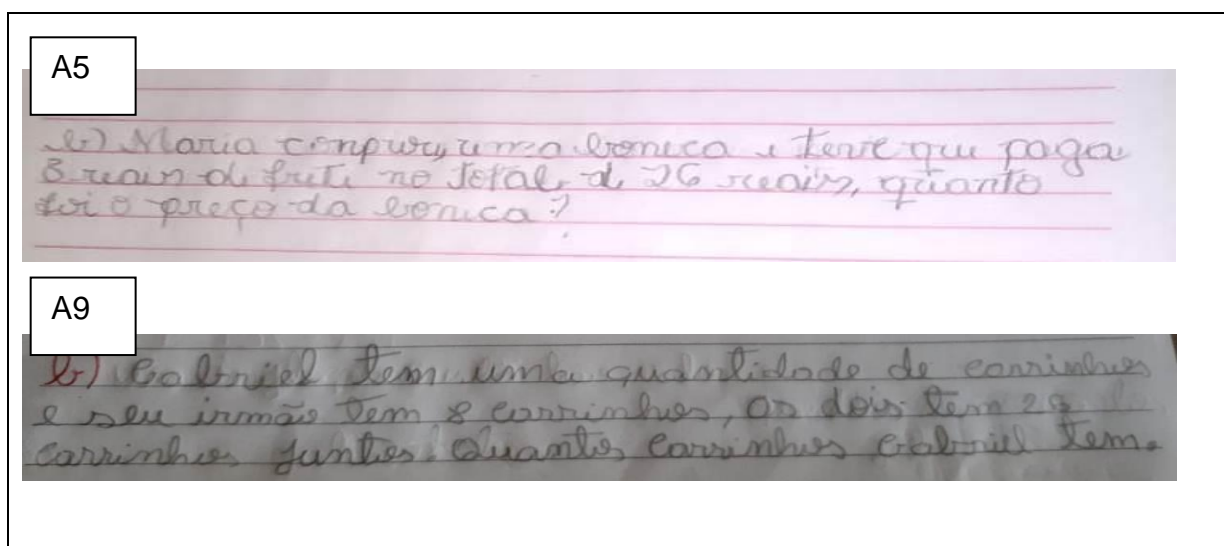 A5
b) Maria conpurou, uma boneca e teve que paga
8 reais de frete no total, d 26 reais, quanto
foi o preço da boneca?
A9
b) Gabriel tem uma quantidade de carrinhos
e seu irmão tem 8 carrinhos, os dois tem 28
carrinhos juntos. Quantos carrinhos Gabriel tem.